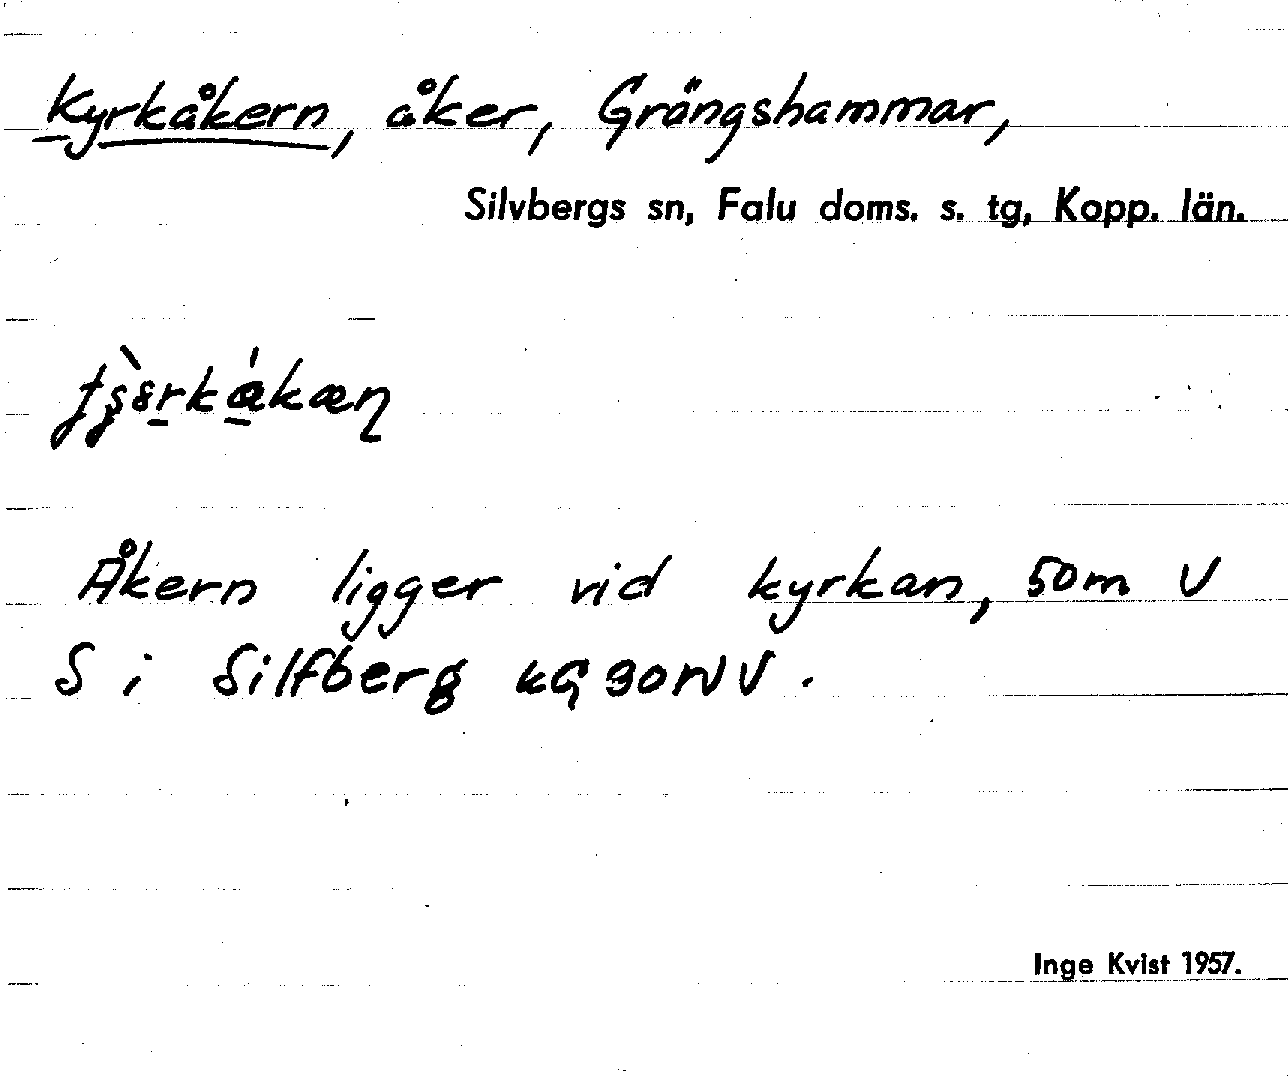 Kyrkåkern, åker, Grängshammar,
Silvbergs sn, Falu doms. s. tg, Kopp. län.
Åkern ligger vid kyrkan, 50m V
S i Silfberg kG 90NV.
Inge Kvist 1957.